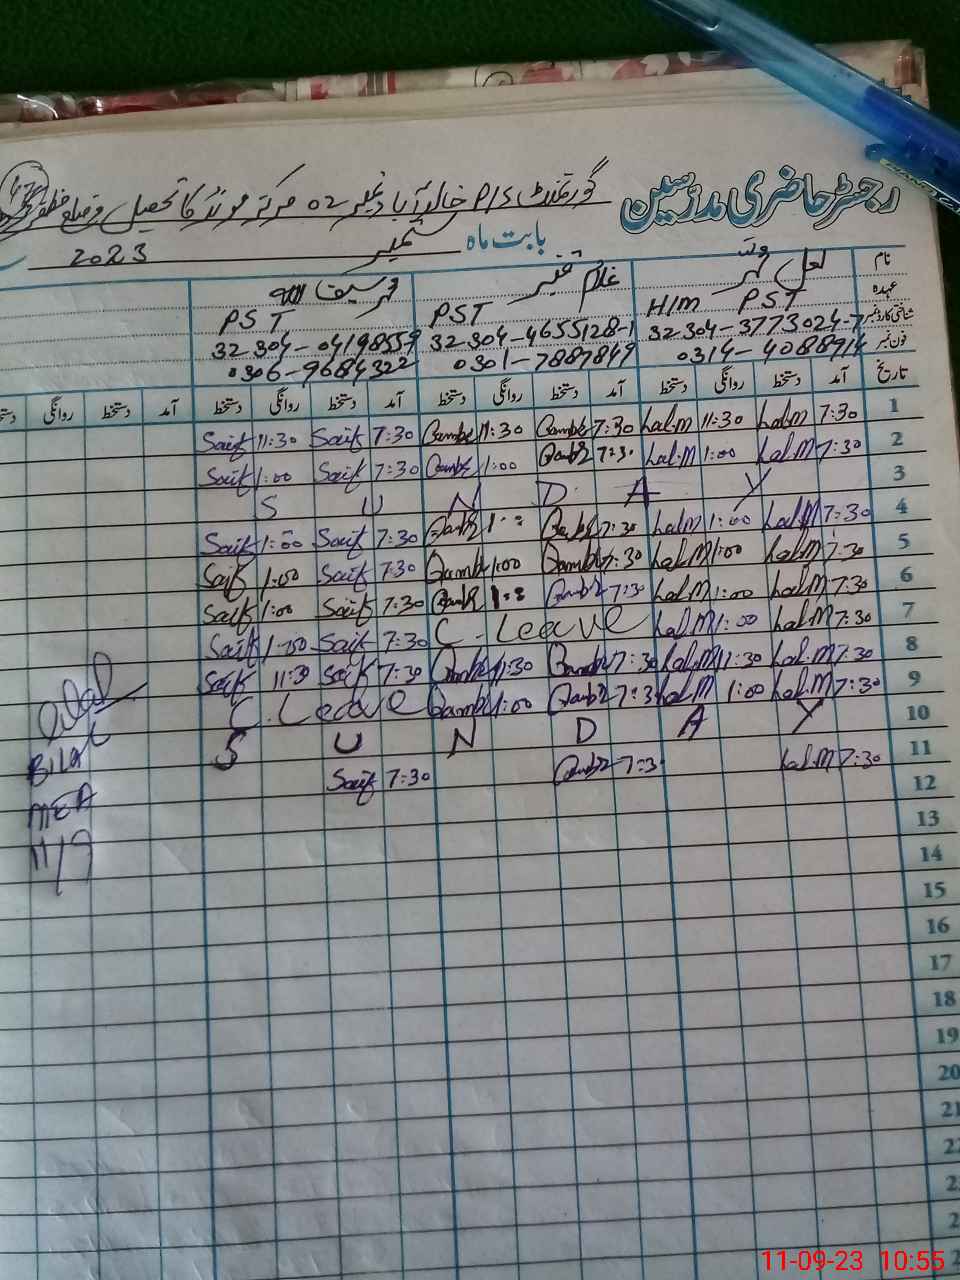 رجسٹر حاضری مدرسین
گورنمنٹ P/S خالد آباد نمبر 02 مرکز مونڈکا تحصیل و ضلع
بابت ماہ ستمبر 2023
نام لعل محمد غلام قنبر محمد سیف اللہ
عہدہ H/m P.S.T PST PST
شناختی کارڈ نمبر 32304-3773024-7 32304-4655128-1 32304-0419855-9
فون نمبر 0314-4088914 0301-7887849 0306-9684322
تاریخ آمد دستخط روانگی دستخط آمد دستخط روانگی دستخط آمد دستخط روانگی دستخط آمد دستخط روانگی
1 7:30 Lal.M 11:30 Lal.M 7:30 Qambr 11:30 Qambr 7:30 Saif 11:30 Saif
2 7:30 Lal.M 1:00 Lal.M 7:30 Qambr 1:00 Qambr 7:30 Saif 1:00 Saif
3 S U N D A Y
4 7:30 Lal.M 1:00 Lal.M 7:30 Qambr 1:00 Qambr 7:30 Saif 1:00 Saif
5 7:30 Lal.M 1:00 Lal.M 7:30 Qambr 1:00 Qambr 7:30 Saif 1:00 Saif
6 7:30 Lal.M 1:00 Lal.M 7:30 Qambr 1:00 Qambr 7:30 Saif 1:00 Saif
7 7:30 Lal.M 1:00 Lal.M C-Leave 7:30 Saif 1:00 Saif
8 7:30 Lal.M 11:30 Lal.M 7:30 Qambr 11:30 Qambr 7:30 Saif 11:30 Saif
9 7:30 Lal.M 1:00 Lal.M 7:30 Qambr 1:00 Qambr C.Leave
10 S U N D A Y
11 7:30 Lal.M 7:30 Qambr 7:30 Saif
12
13
14
15
16
17
18
19
20
21
22
BILAL
MEA
11/9
11-09-23 10:55